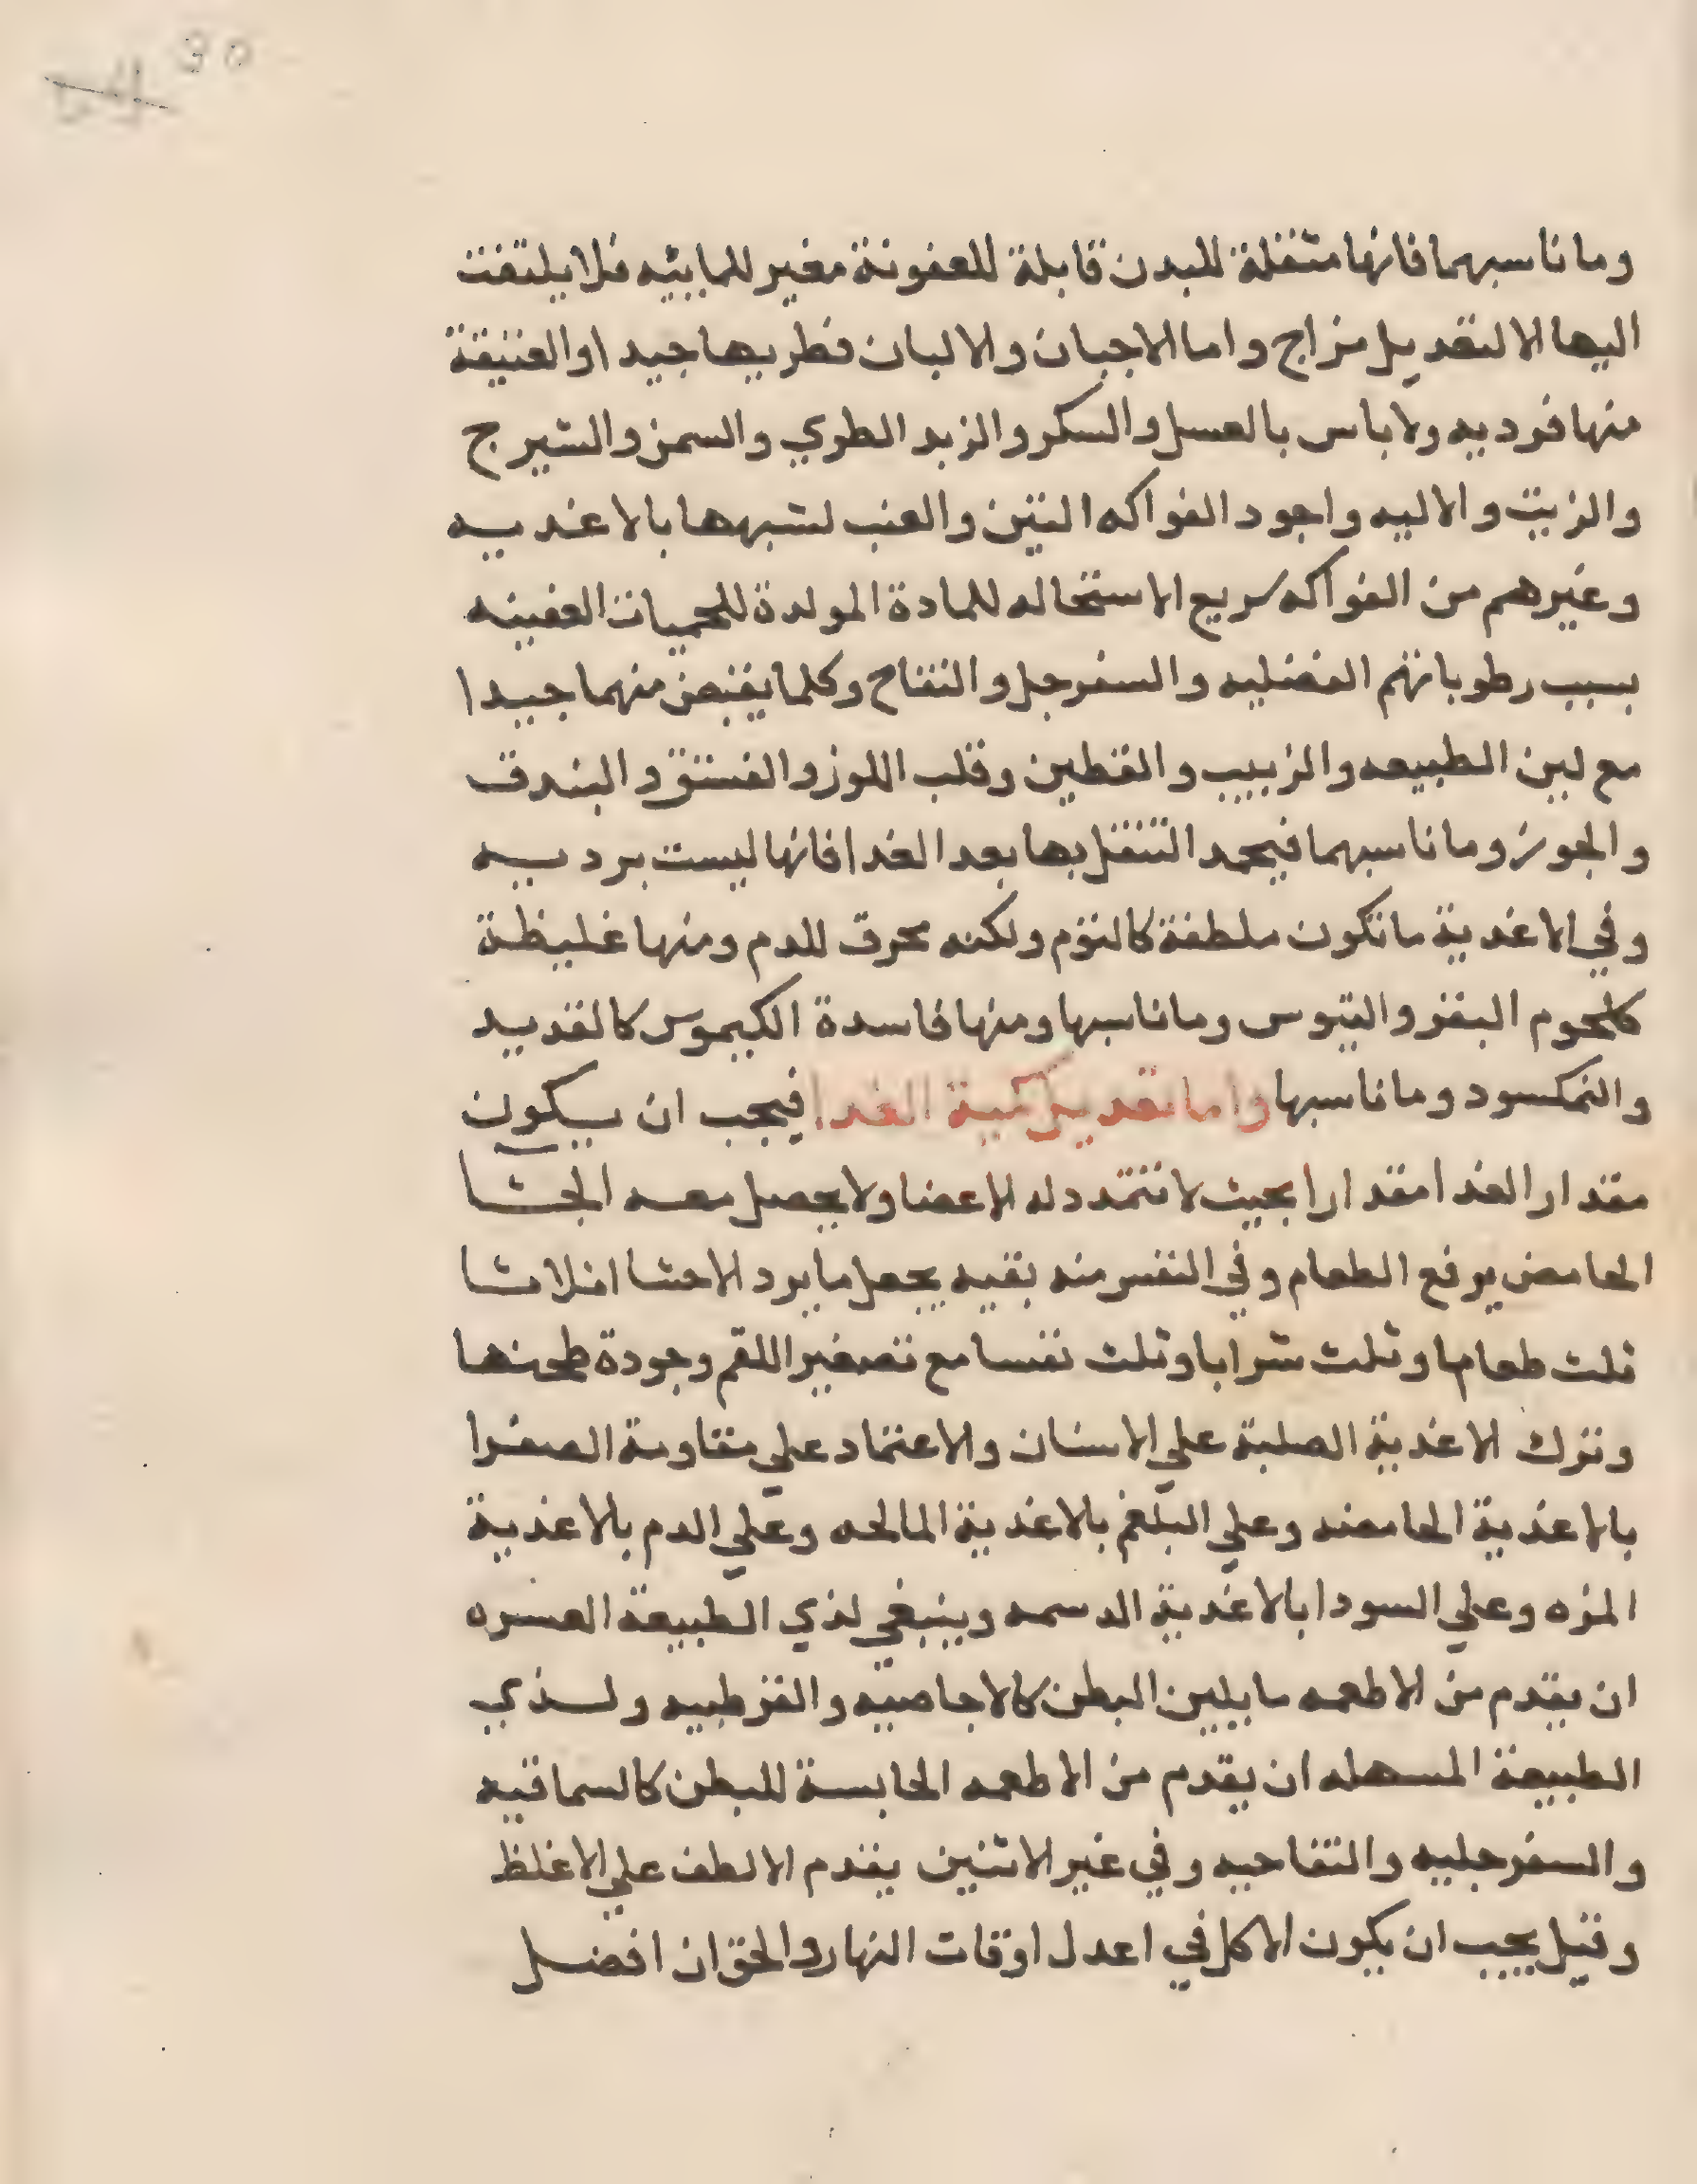 30
وما ناسبهما فانها مثقلة للبدن قابلة للعفونة مغير للمايئه فلا يلتفت
اليها الا لتعديل مزاج واما الاجبان والالبان فطريها جيد او العتيقة
منها فرديه ولا باس بالعسل والسكر والزبد الطري والسمن والشيرج
والزيت والاليه واجود الفواكه التين والعنب لشبهها بالاغذيه
وغيرهم من الفواكه سريع الاستحاله للمادة المولدة للحميات العفينه
بسبب رطوباتهم الفضليه والسفرجل والتفاح وكلما يقبض منهما جيدا
مع لين الطبيعه والزبيب والقطين وقلب اللوز والفستق والبندق
والجوز وما ناسبهما فيحمد التنقل بها بعد الغدا فانها ليست برديه
وفي الاغذية ما تكون ملطفة كالثوم ولكنه محرق للدم ومنها غليظة
كلحوم البقر والتيوس وما ناسبها ومنها فاسدة الكيموس كالقديد
والنمكسود وما ناسبها واما تعديل كمية الغدا فيجب ان يكون
مقدار الغدا مقدارا بحيث لا تتمدد له الاعضا ولا يحصل معه الجشا
الحامض يرفع الطعام وفي النفس منه بقيه يجعل ما يرد الاحشا اثلاثا
ثلث طعاما وثلث شرابا وثلث نفسا مع تصغير اللقم وجودة طحنها
وترك الاغذية الصلبة علي الاسنان والاعتماد علي مقاومة الصفرا
بالاغذية الحامضه وعلي البلغم بالاغذية المالحه وعلي الدم بالاغذية
المزه وعلي السودا بالاغذية الدسمه وينبغي لذي الطبيعة العسره
ان يقدم من الاطعمه ما يلين البطن كالاجاصيه والقرطبيه ولذي
الطبيعة المسهله ان يقدم من الاطعمه الحابسة للبطن كالسماقيه
والسفرجليه والتفاحيه وفي غير الاثنين يقدم الالطف علي الاغلظ
وقيل يجب ان يكون الاكل في اعدل اوقات النهار والحق ان افضل